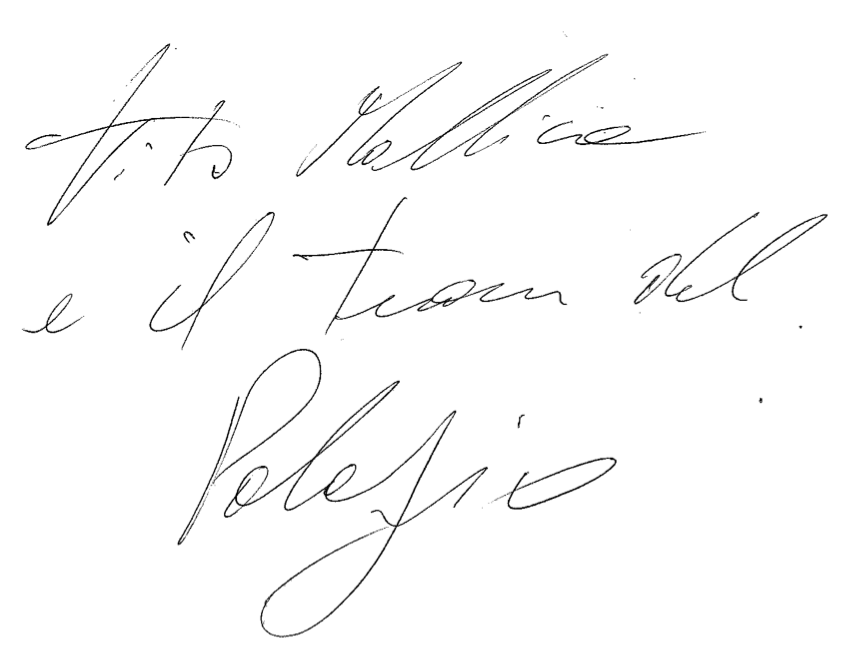 Vito Mollica
e il team del
Palagio